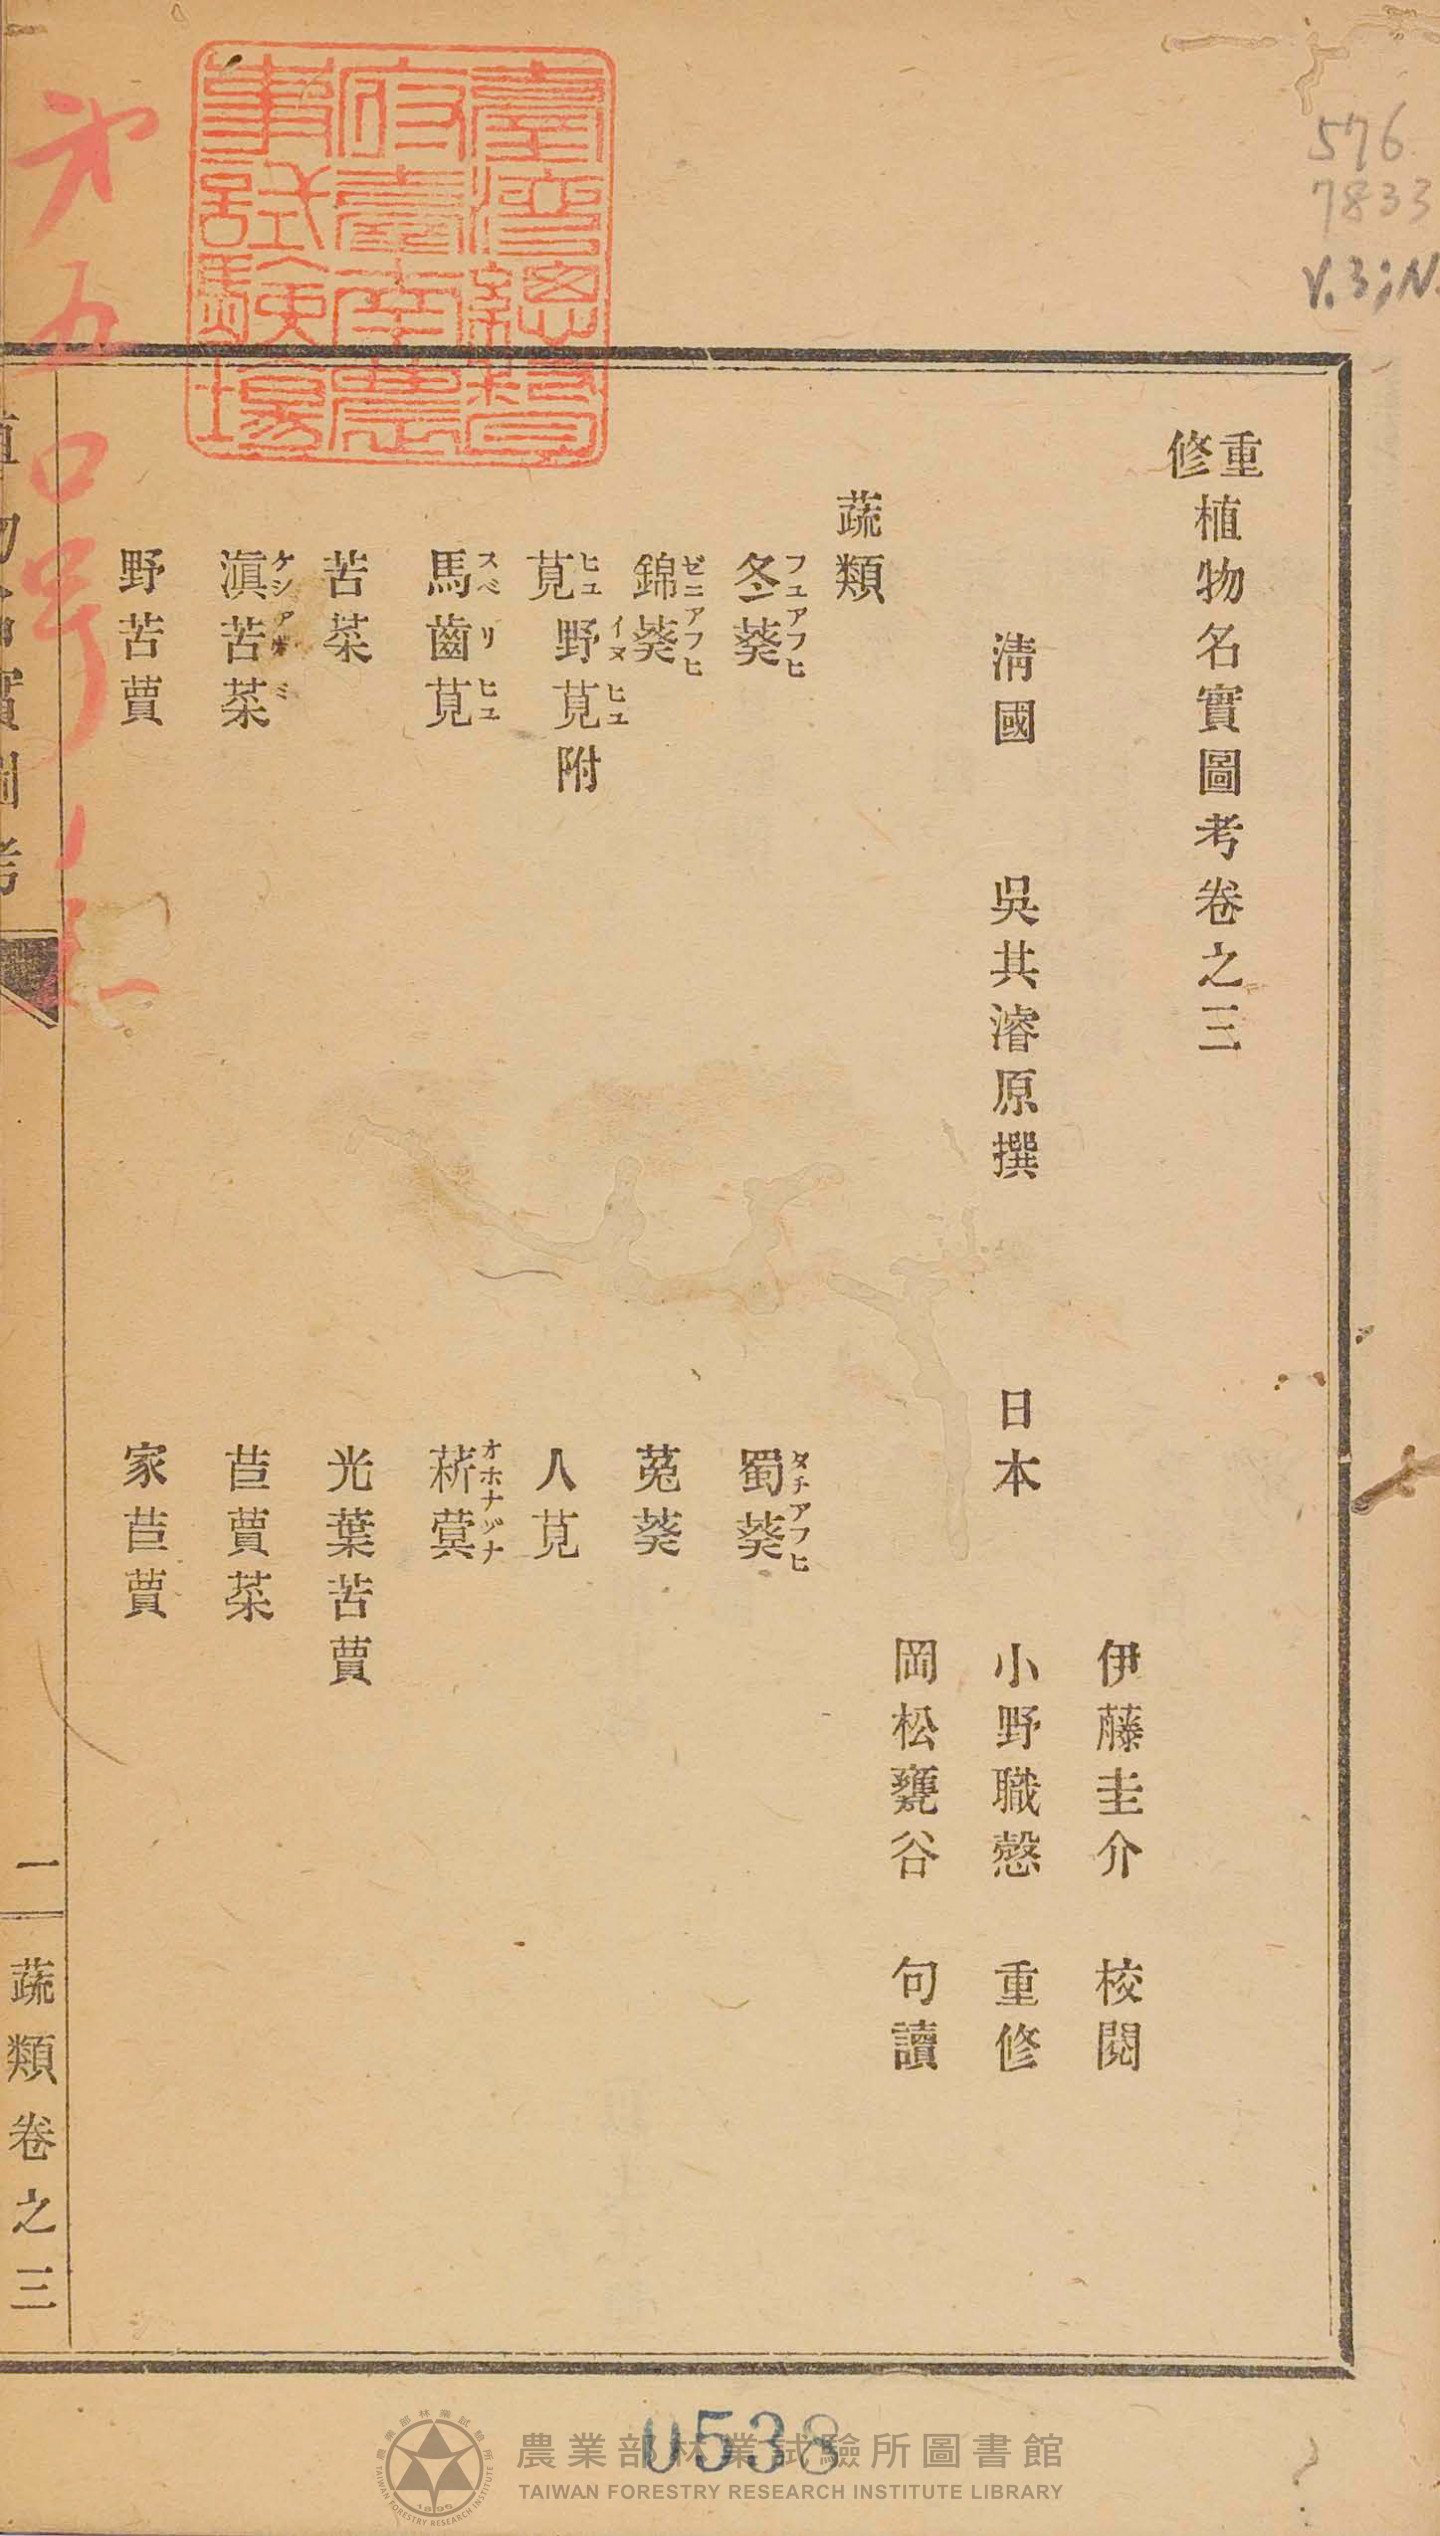 重修植物名實圖考卷之三
伊藤圭介 校閱
清國 吳其濬原撰 日本 小野職愨 重修
岡松甕谷 句讀
蔬類
冬葵 フユアフヒ 蜀葵 タチアフヒ
錦葵 ゼニアフヒ 菟葵
莧 ヒユ 野莧附 イヌヒユ 人莧
馬齒莧 スベリヒユ 菥蓂 オホナヅナ
苦菜 光葉苦蕒
滇苦菜 ケシアザミ 苣蕒菜
野苦蕒 家苣蕒
植物名實圖考
一 蔬類卷之三
臺灣總督府臺南農事試驗場
576
7833
V.3;N.
0538
農業部林業試驗所圖書館
TAIWAN FORESTRY RESEARCH INSTITUTE LIBRARY
農業部林業試驗所
TAIWAN FORESTRY RESEARCH INSTITUTE
1895